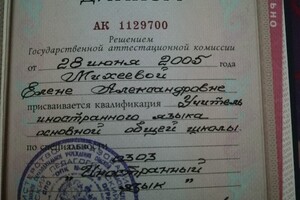 АК 1129700
Решением
Государственной аттестационной комиссии
от 28 июня 2005 года
Михеевой
Елене Александровне
присваивается квалификация Учитель
иностранного языка
основной общей школы
по специальности
0303
Иностранный
язык